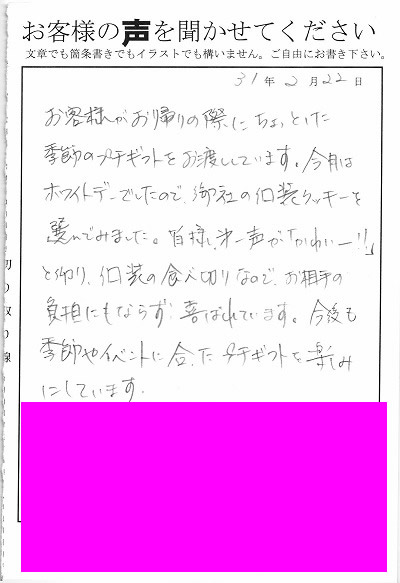 お客様の声を聞かせてください
文章でも箇条書きでもイラストでも構いません。ご自由にお書き下さい。
31年2月22日
お客様がお帰りの際にちょっとした
季節のプチギフトをお渡ししています。今月は
ホワイトデーでしたので、御社の個装クッキーを
選んでみました。皆様、第一声が「かわいー!!」
と仰り、個装の食べ切りなので、お相手の
負担にもならず、喜ばれています。今後も
季節やイベントに合ったプチギフトを楽しみ
にしています。
切り取り線